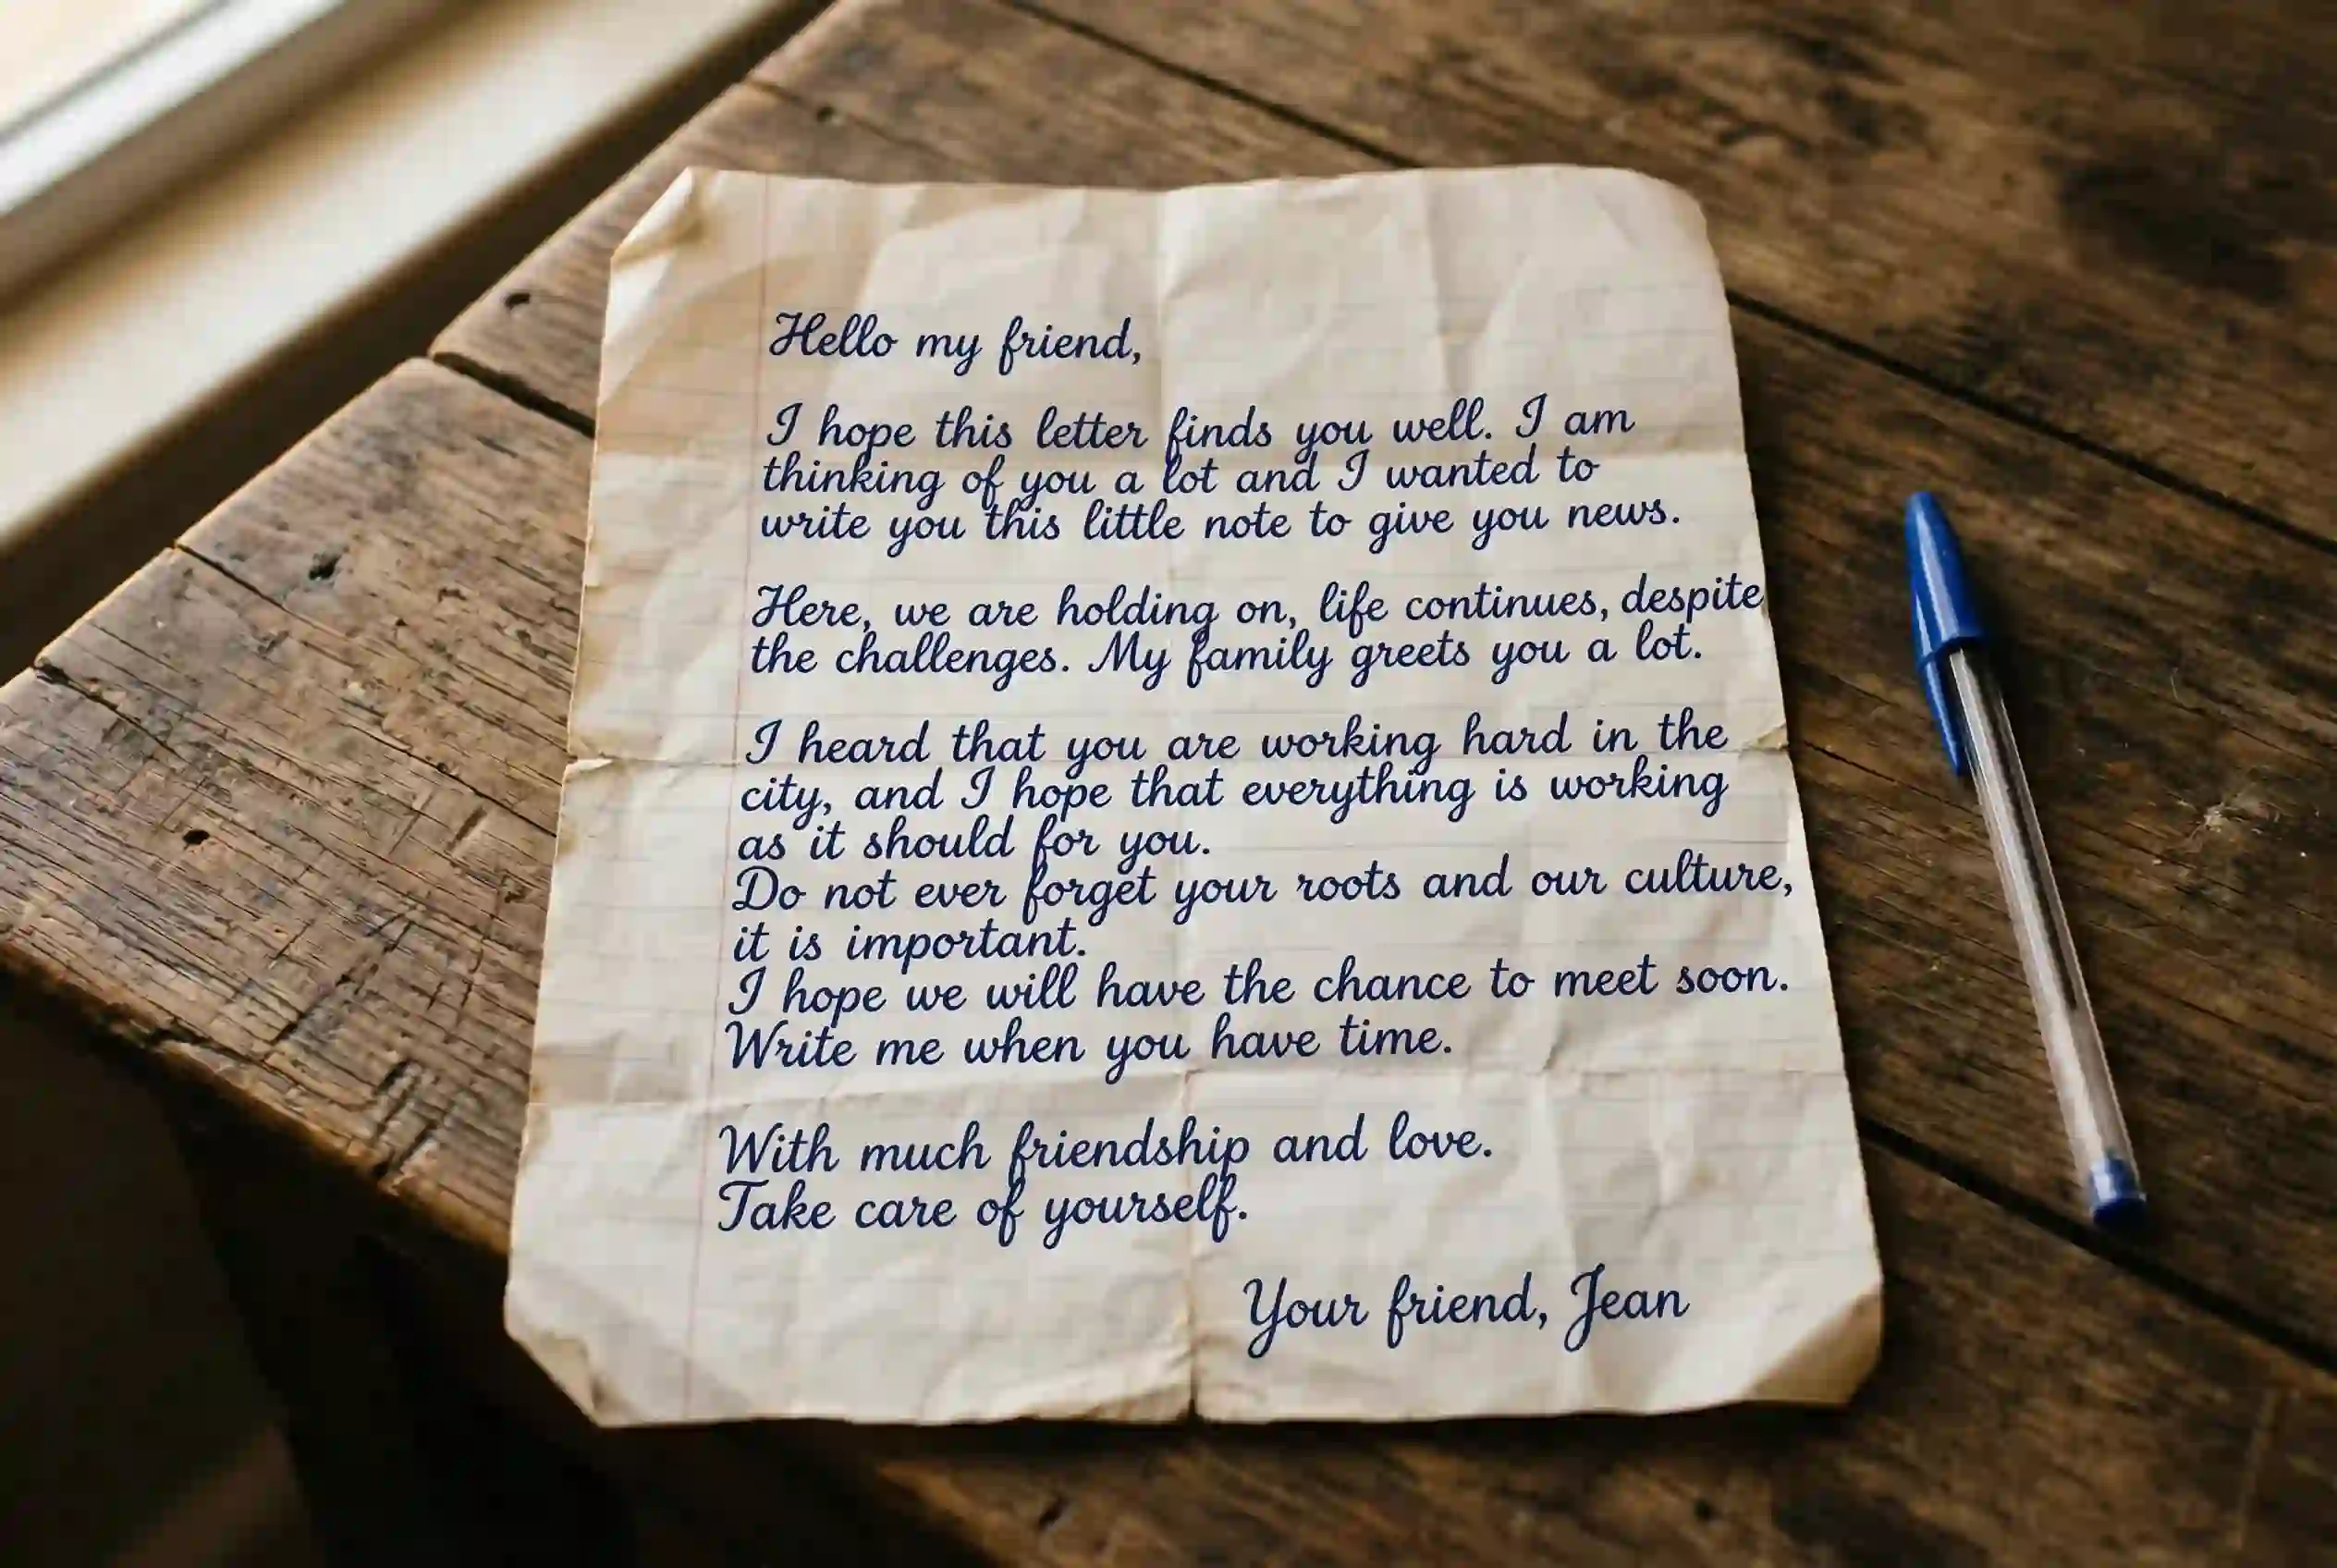 Hello my friend,
I hope this letter finds you well. I am
thinking of you a lot and I wanted to
write you this little note to give you news.
Here, we are holding on, life continues, despite
the challenges. My family greets you a lot.
I heard that you are working hard in the
city, and I hope that everything is working
as it should for you.
Do not ever forget your roots and our culture,
it is important.
I hope we will have the chance to meet soon.
Write me when you have time.
With much friendship and love.
Take care of yourself.
Your friend, Jean